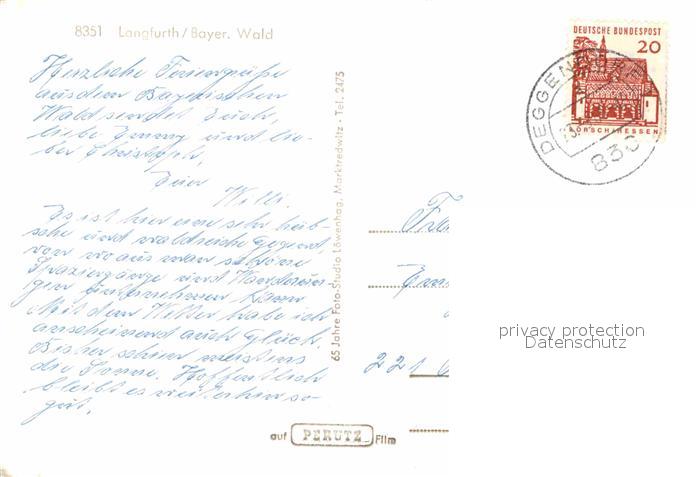 8351 Langfurth/Bayer. Wald
Herzliche Feriengrüße
aus dem Bayerischen
Wald sendet Euch,
liebe Emmy und lie-
ber Christoph,
Euer
Willi.
Es ist hier eine sehr hüb-
sche und waldreiche Gegend,
von wo aus man schöne
Spaziergänge und Wanderun-
gen unternehmen kann.
Mit dem Wetter habe ich
anscheinend auch Glück.
Bisher schien meistens
die Sonne. Hoffentlich
bleibt es weiterhin so
gut.
65 Jahre Foto-Studio Löwenhag, Marktredwitz · Tel. 2475
auf PERUTZ Film
DEUTSCHE BUNDESPOST
20
LORSCH/HESSEN
DEGGENDORF
836
221
privacy protection
Datenschutz